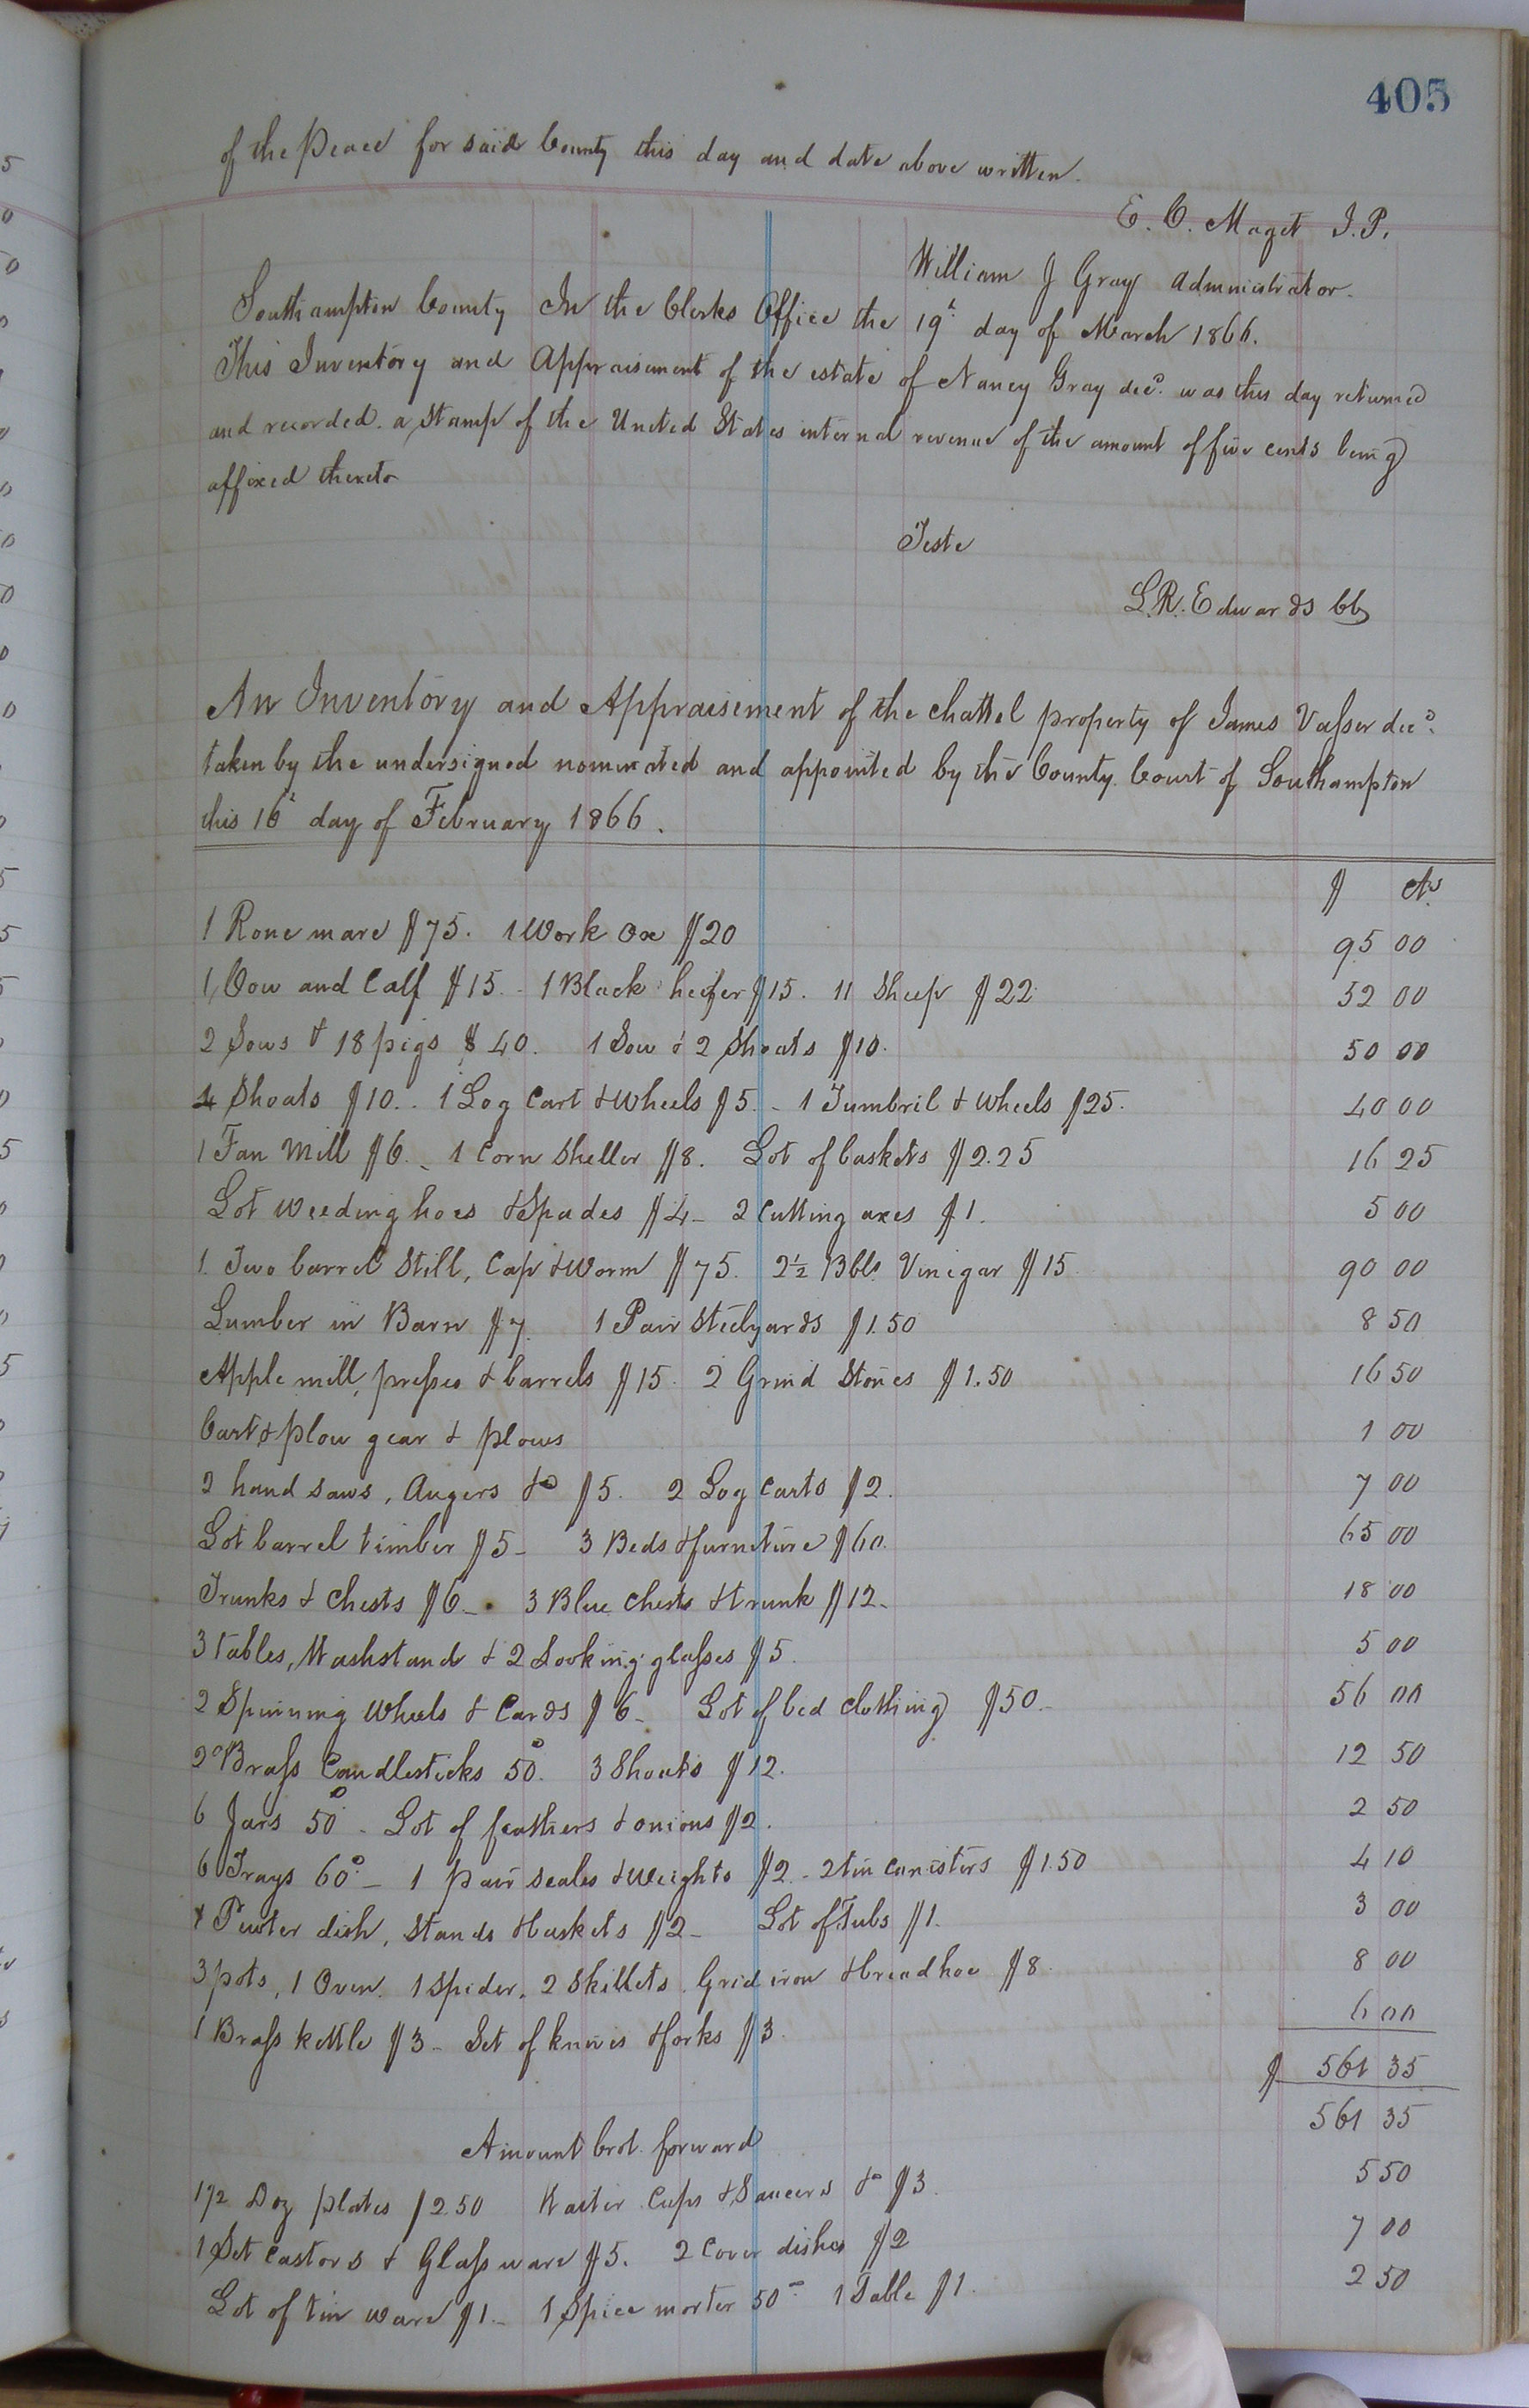 405
of the Peace for said County this day and date above written.
E. C. Maget J.P.
William J Gray Administrator.
Southampton County In the Clerks Office the 19th day of March 1866.
This Inventory and Appraisement of the estate of Nancy Gray decd. was this day returned
and recorded. a Stamp of the United States internal revenue of the amount of five cents being
affixed thereto
Teste
L.R. Edwards CC
An Inventory and Appraisement of the chattel property of James Vasser decd.
taken by the undersigned nominated and appointed by the County Court of Southampton
this 16th day of February 1866.
$ cts
1 Rone mare $75. 1 Work Ox $20 95 00
1 Cow and Calf $15. - 1 Black heifer $15. 11 Sheep $22 52 00
2 Sows & 18 pigs $40. 1 Sow & 2 Shoats $10. 50 00
4 Shoats $10.. 1 Log Cart & Wheels $5. - 1 Tumbril & Wheels $25. 40 00
1 Fan Mill $6. - 1 Corn Sheller $8. Lot of baskets $2.25 16 25
Lot weeding hoes & Spades $4 - 2 Cutting axes $1. 5 00
1. Two barrel Still, Cap & Worm $75. 2½ Bbls Vinegar $15 90 00
Lumber in Barn $7. 1 Pair Steelyards $1.50 8 50
Apple mill, presses & barrels $15. 2 Grind Stones $1.50 16 50
Cart & plow gear & plows 1 00
2 hand saws, Augers &c $5. 2 Log Carts $2. 7 00
Lot barrel timber $5 - 3 Beds & furniture $60. 65 00
Trunks & Chests $6 - 3 Blue Chests & trunk $12 - 18 00
3 Tables, Washstand & 2 Looking glasses $5. 5 00
2 Spinning Wheels & Cards $6 - Lot of bed clothing $50. - 56 00
2 Brass Candlesticks 50c. 3 Shoats $12. 12 50
6 Jars 50c - Lot of feathers & onions $2. 2 50
6 Trays 60c. - 1 pair scales & Weights $2. - 2 tin canisters $1.50 4 10
1 Pewter dish, Stands & baskets $2 - Lot of Tubs $1. 3 00
3 pots, 1 Oven. 1 Spider. 2 Skillets. Grid iron & bread hoe $8 8 00
1 Brass kettle $3 - Set of knives & forks $3. 6 00
$ 561 35
Amount brot. forward 561 35
1½ Doz plates $2.50 Waiter Cups & Saucers &c $3. 5 50
1 Set castors & Glass ware $5. 2 Cover dishes $2 7 00
Lot of tin ware $1. - 1 Spice morter 50c 1 Table $1. 2 50